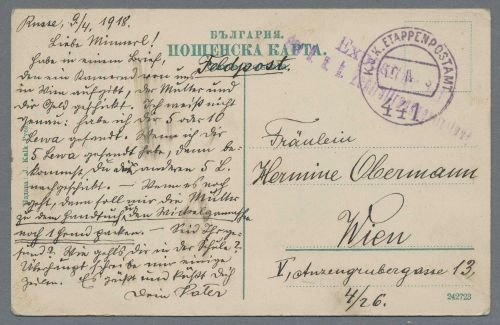 Russe, 2/4, 1918.
Liebe Minnerl!
Habe in einem Brief,
den ein Kamerad von uns
in Wien aufgibt, der Mutter und
dir Geld geschickt. Ich weiß nicht
genau: habe ich dir 5 oder 10
Lewa gesandt. Wenn ich dir
5 Lewa gesandt habe, dann be-
kommst Du die anderen 5 L.
nachgeschickt. — Wenn es noch
geht, dann soll mir die Mutter
zu dem Handtuch u. den Wickelgamaschen
noch 1 Hemd packen. — Seid Ihr ge-
sund? Wie geht's dir in der Schule?
Überhaupt schreibe mir einige
Zeilen. Es grüßt und küßt dich
Dein Vater
БЪЛГАРИЯ.
ПОЩЕНСКА КАРТА.
Feldpost.
K.u.K. ETAPPENPOSTAMT
441
Fräulein
Hermine Obermann
Wien
V, Anzengrubergasse 13,
4/26.
242723